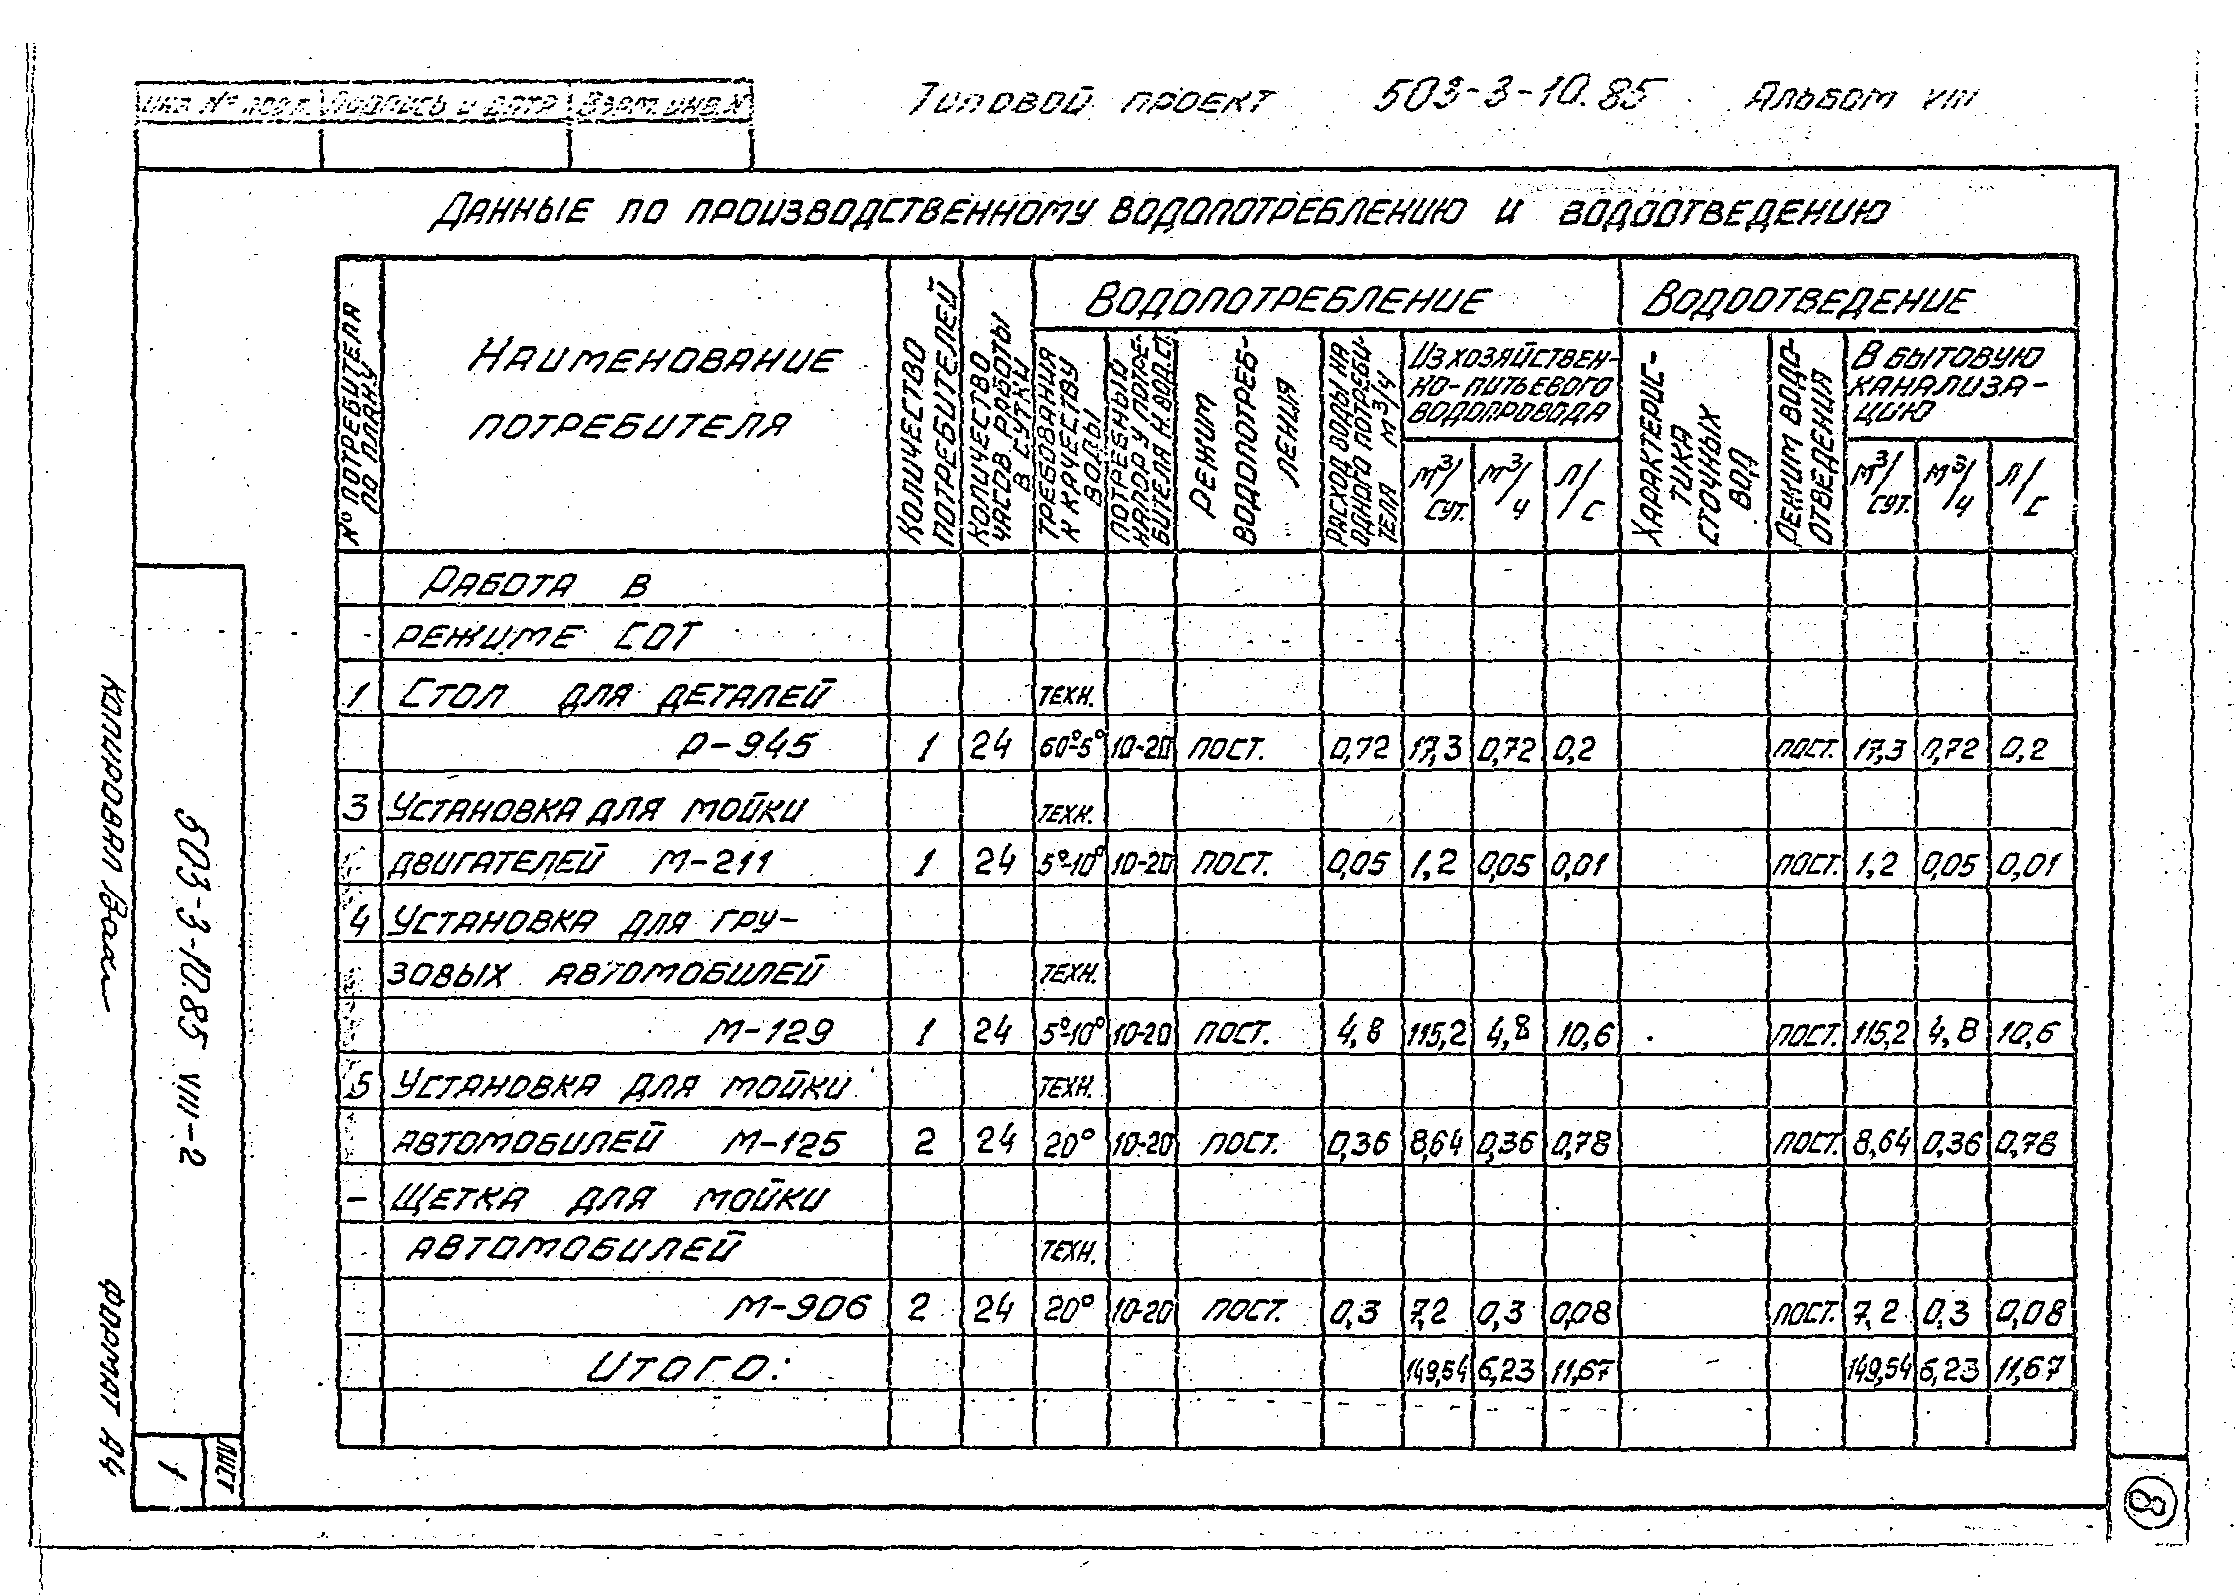 Инв. № подл. Подпись и дата Взам. инв. №
Типовой проект 503-3-10.85 Альбом VIII
Данные по производственному водопотреблению и водоотведению
№ потребителя по плану
Наименование потребителя
Количество потребителей
Количество часов работы в сутки
Водопотребление
Требования к качеству воды
Потребный напор у потребителя м. вод. ст.
Режим водопотребления
Расход воды на одного потребителя м³/ч
Из хозяйственно-питьевого водопровода
м³/сут. м³/ч л/с
Водоотведение
Характеристика сточных вод
Режим водоотведения
В бытовую канализацию
м³/сут. м³/ч л/с
Работа в
режиме СОТ
1 Стол для деталей техн.
Р-945 1 24 60°-5° 10-20 пост. 0,72 17,3 0,72 0,2 пост. 17,3 0,72 0,2
3 Установка для мойки техн.
двигателей М-211 1 24 5°-10° 10-20 пост. 0,05 1,2 0,05 0,01 пост. 1,2 0,05 0,01
4 Установка для гру-
зовых автомобилей техн.
М-129 1 24 5°-10° 10-20 пост. 4,8 115,2 4,8 10,6 пост. 115,2 4,8 10,6
5 Установка для мойки техн.
автомобилей М-125 2 24 20° 10-20 пост. 0,36 8,64 0,36 0,78 пост. 8,64 0,36 0,78
- Щетка для мойки
автомобилей техн.
М-906 2 24 20° 10-20 пост. 0,3 7,2 0,3 0,08 пост. 7,2 0,3 0,08
Итого: 149,54 6,23 11,67 149,54 6,23 11,67
503-3-10.85 VIII-2
Лист
1
Копировал
Формат А4
8